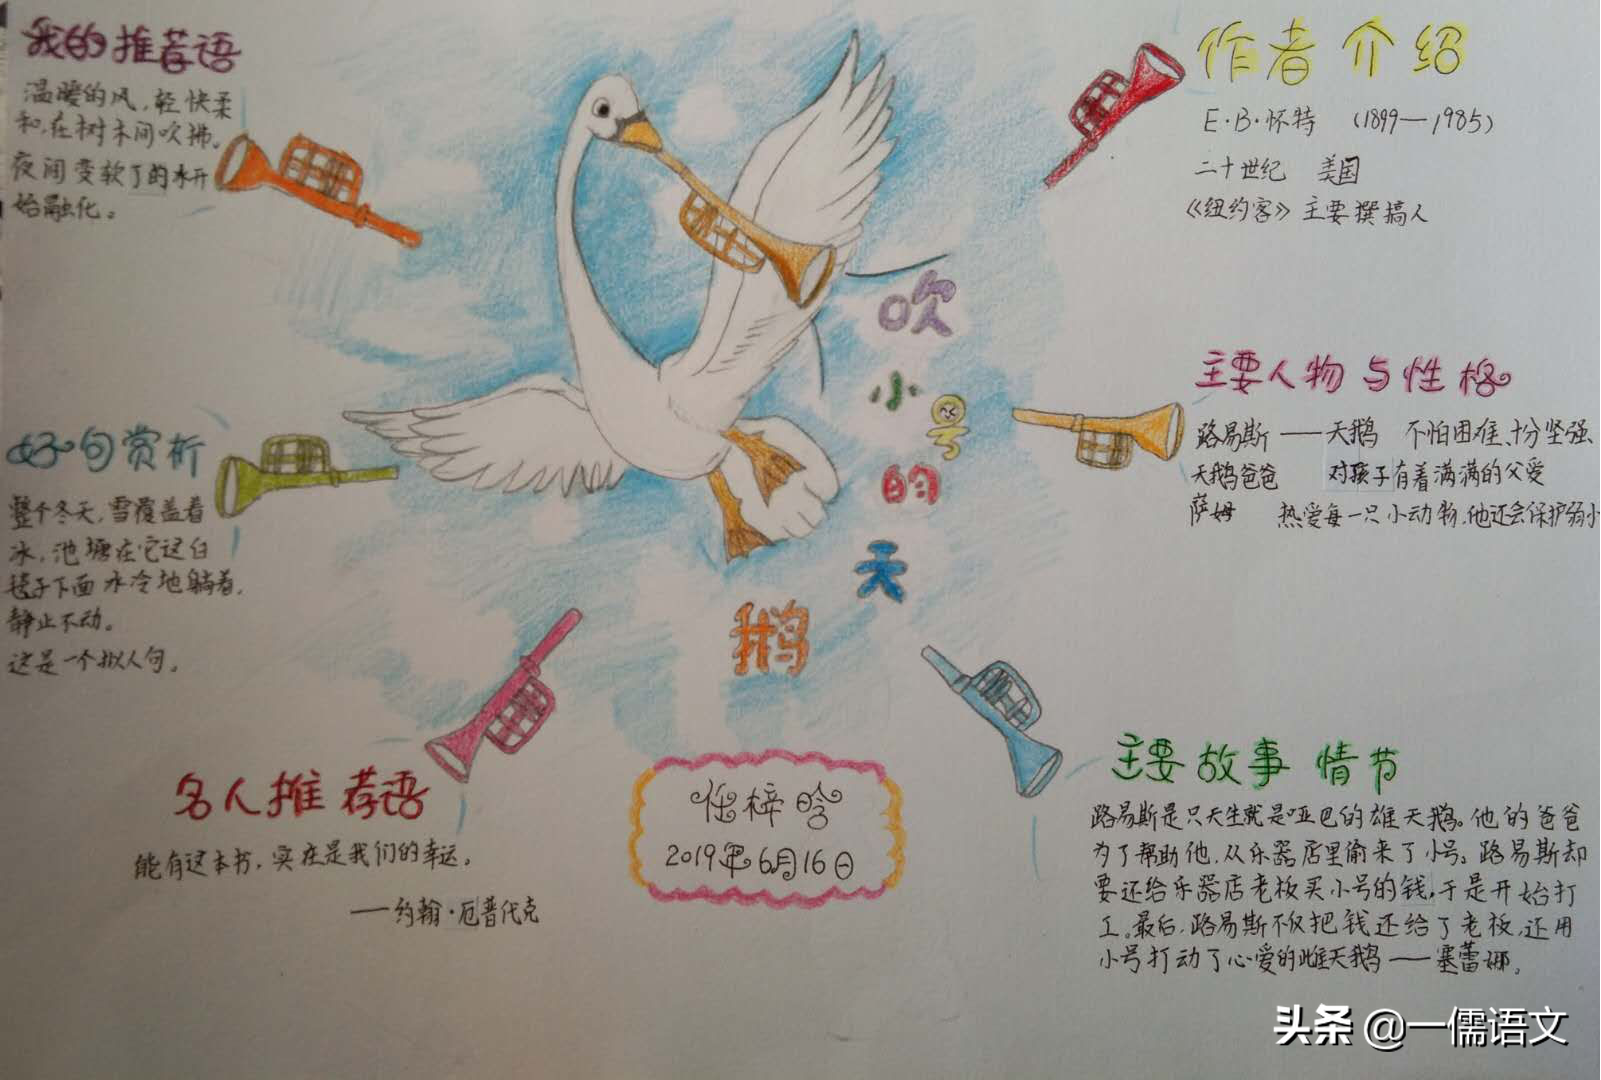 我的推荐语
温暖的风，轻快柔
和，在树木间吹拂。
夜间变软了的冰开
始融化。
好句赏析
整个冬天，雪覆盖着
冰，池塘在它这白
毯子下面冰冷地躺着，
静止不动。
这是一个拟人句。
名人推荐语
能有这本书，实在是我们的幸运。
——约翰·厄普代克
吹
小
号
的
天
鹅
任梓晗
2019年6月16日
作者介绍
E·B·怀特 （1899—1985）
二十世纪 美国
《纽约客》主要撰搞人
主要人物与性格
路易斯——天鹅 不怕困难、十分坚强、
天鹅爸爸 对孩子有着满满的父爱
萨姆 热爱每一只小动物，他还会保护弱小
主要故事情节
路易斯是只天生就是哑巴的雄天鹅。他的爸爸
为了帮助他，从乐器店里偷来了小号。路易斯却
要还给乐器店老板买小号的钱，于是开始打
工。最后，路易斯不仅把钱还给了老板，还用
小号打动了心爱的雌天鹅——塞蕾娜。
头条 @一儒语文